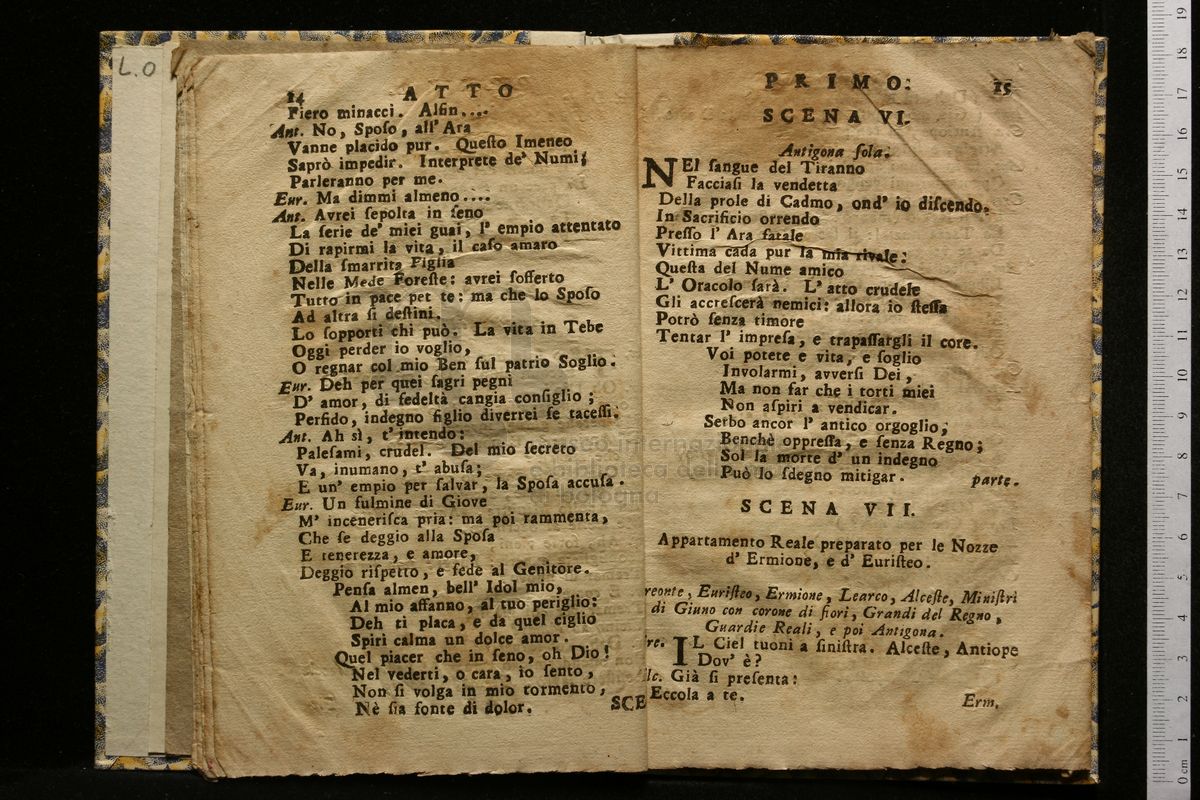 L.O
14 ATTO
Fiero minacci. Alfin....
Ant. No, Spoſo, all' Ara
Vanne placido pur. Queſto Imeneo
Saprò impedir. Interprete de' Numi;
Parleranno per me.
Eur. Ma dimmi almeno....
Ant. Avrei ſepolta in ſeno
La ſerie de' miei guai, l' empio attentato
Di rapirmi la vita, il caſo amaro
Della ſmarrita Figlia
Nelle Mede Foreſte: avrei ſofferto
Tutto in pace pet te: ma che lo Spoſo
Ad altra ſi deſtini.
Lo ſopporti chi può. La vita in Tebe
Oggi perder io voglio,
O regnar col mio Ben ſul patrio Soglio.
Eur. Deh per quei ſagri pegni
D' amor, di fedeltà cangia conſiglio;
Perfido, indegno figlio diverrei ſe taceſſi.
Ant. Ah sì, t' intendo:
Paleſami, crudel. Del mio ſecreto
Va, inumano, t' abuſa;
E un' empio per ſalvar, la Spoſa accuſa.
Eur. Un fulmine di Giove
M' inceneriſca pria: ma poi rammenta,
Che ſe deggio alla Spoſa
E tenerezza, e amore,
Deggio riſpetto, e fede al Genitore.
Penſa almen, bell' Idol mio,
Al mio affanno, al tuo periglio:
Deh ti placa, e da quel ciglio
Spiri calma un dolce amor.
Quel piacer che in ſeno, oh Dio!
Nel vederti, o cara, io ſento,
Non ſi volga in mio tormento,
Nè ſia fonte di dolor.
SCE
PRIMO. 15
SCENA VI.
Antigona ſola.
NEl ſangue del Tiranno
Facciaſi la vendetta
Della prole di Cadmo, ond' io diſcendo.
In Sacrificio orrendo
Preſſo l' Ara fatale
Vittima cada pur la mia rivale:
Queſta del Nume amico
L' Oracolo ſarà. L' atto crudele
Gli accreſcerà nemici: allora io ſteſſa
Potrò ſenza timore
Tentar l' impreſa, e trapaſſargli il core.
Voi potete e vita, e ſoglio
Involarmi, avverſi Dei,
Ma non far che i torti miei
Non aſpiri a vendicar.
Serbo ancor l' antico orgoglio,
Benchè oppreſſa, e ſenza Regno;
Sol la morte d' un indegno
Può lo ſdegno mitigar. parte.
SCENA VII.
Appartamento Reale preparato per le Nozze
d' Ermione, e d' Euriſteo.
reonte, Euriſteo, Ermione, Learco, Alceſte, Miniſtri
di Giuno con corone di fiori, Grandi del Regno,
Guardie Reali, e poi Antigona.
re. IL Ciel tuoni a ſiniſtra. Alceſte, Antiope
Dov' è?
lc. Già ſi preſenta:
Eccola a te.
Erm.